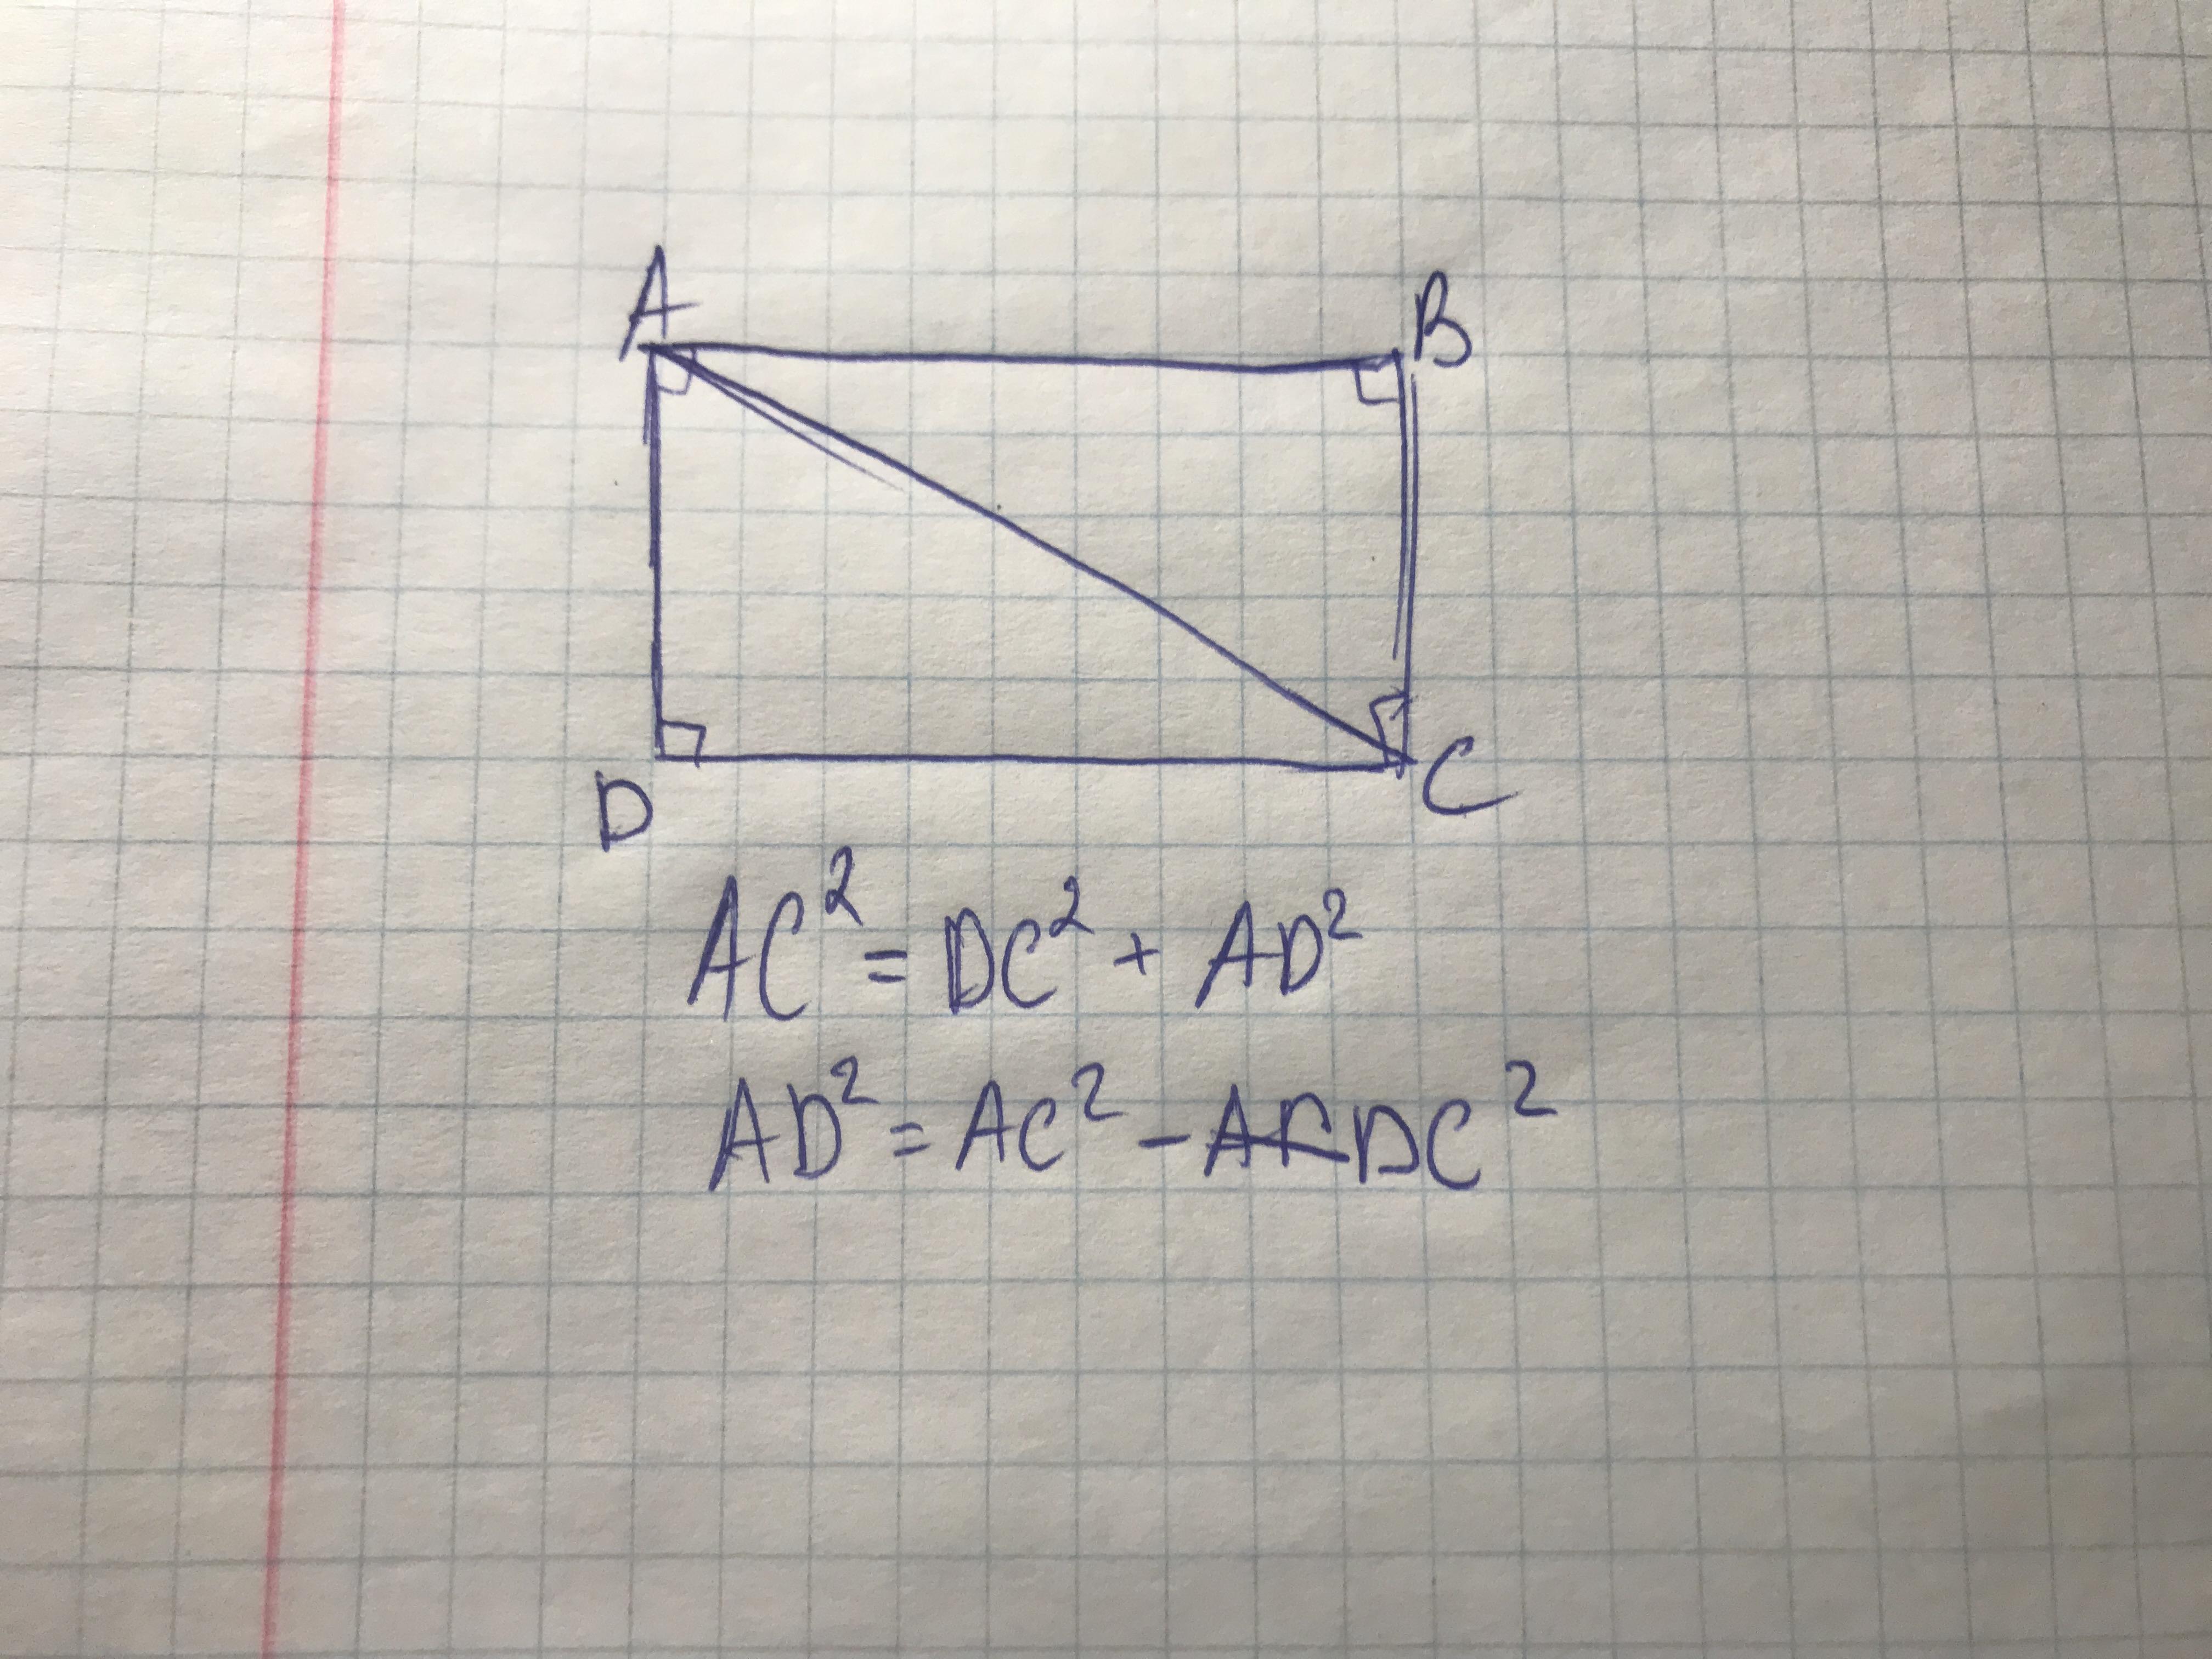 A B
D C
AC² = DC² + AD²
AD² = AC² - DC²